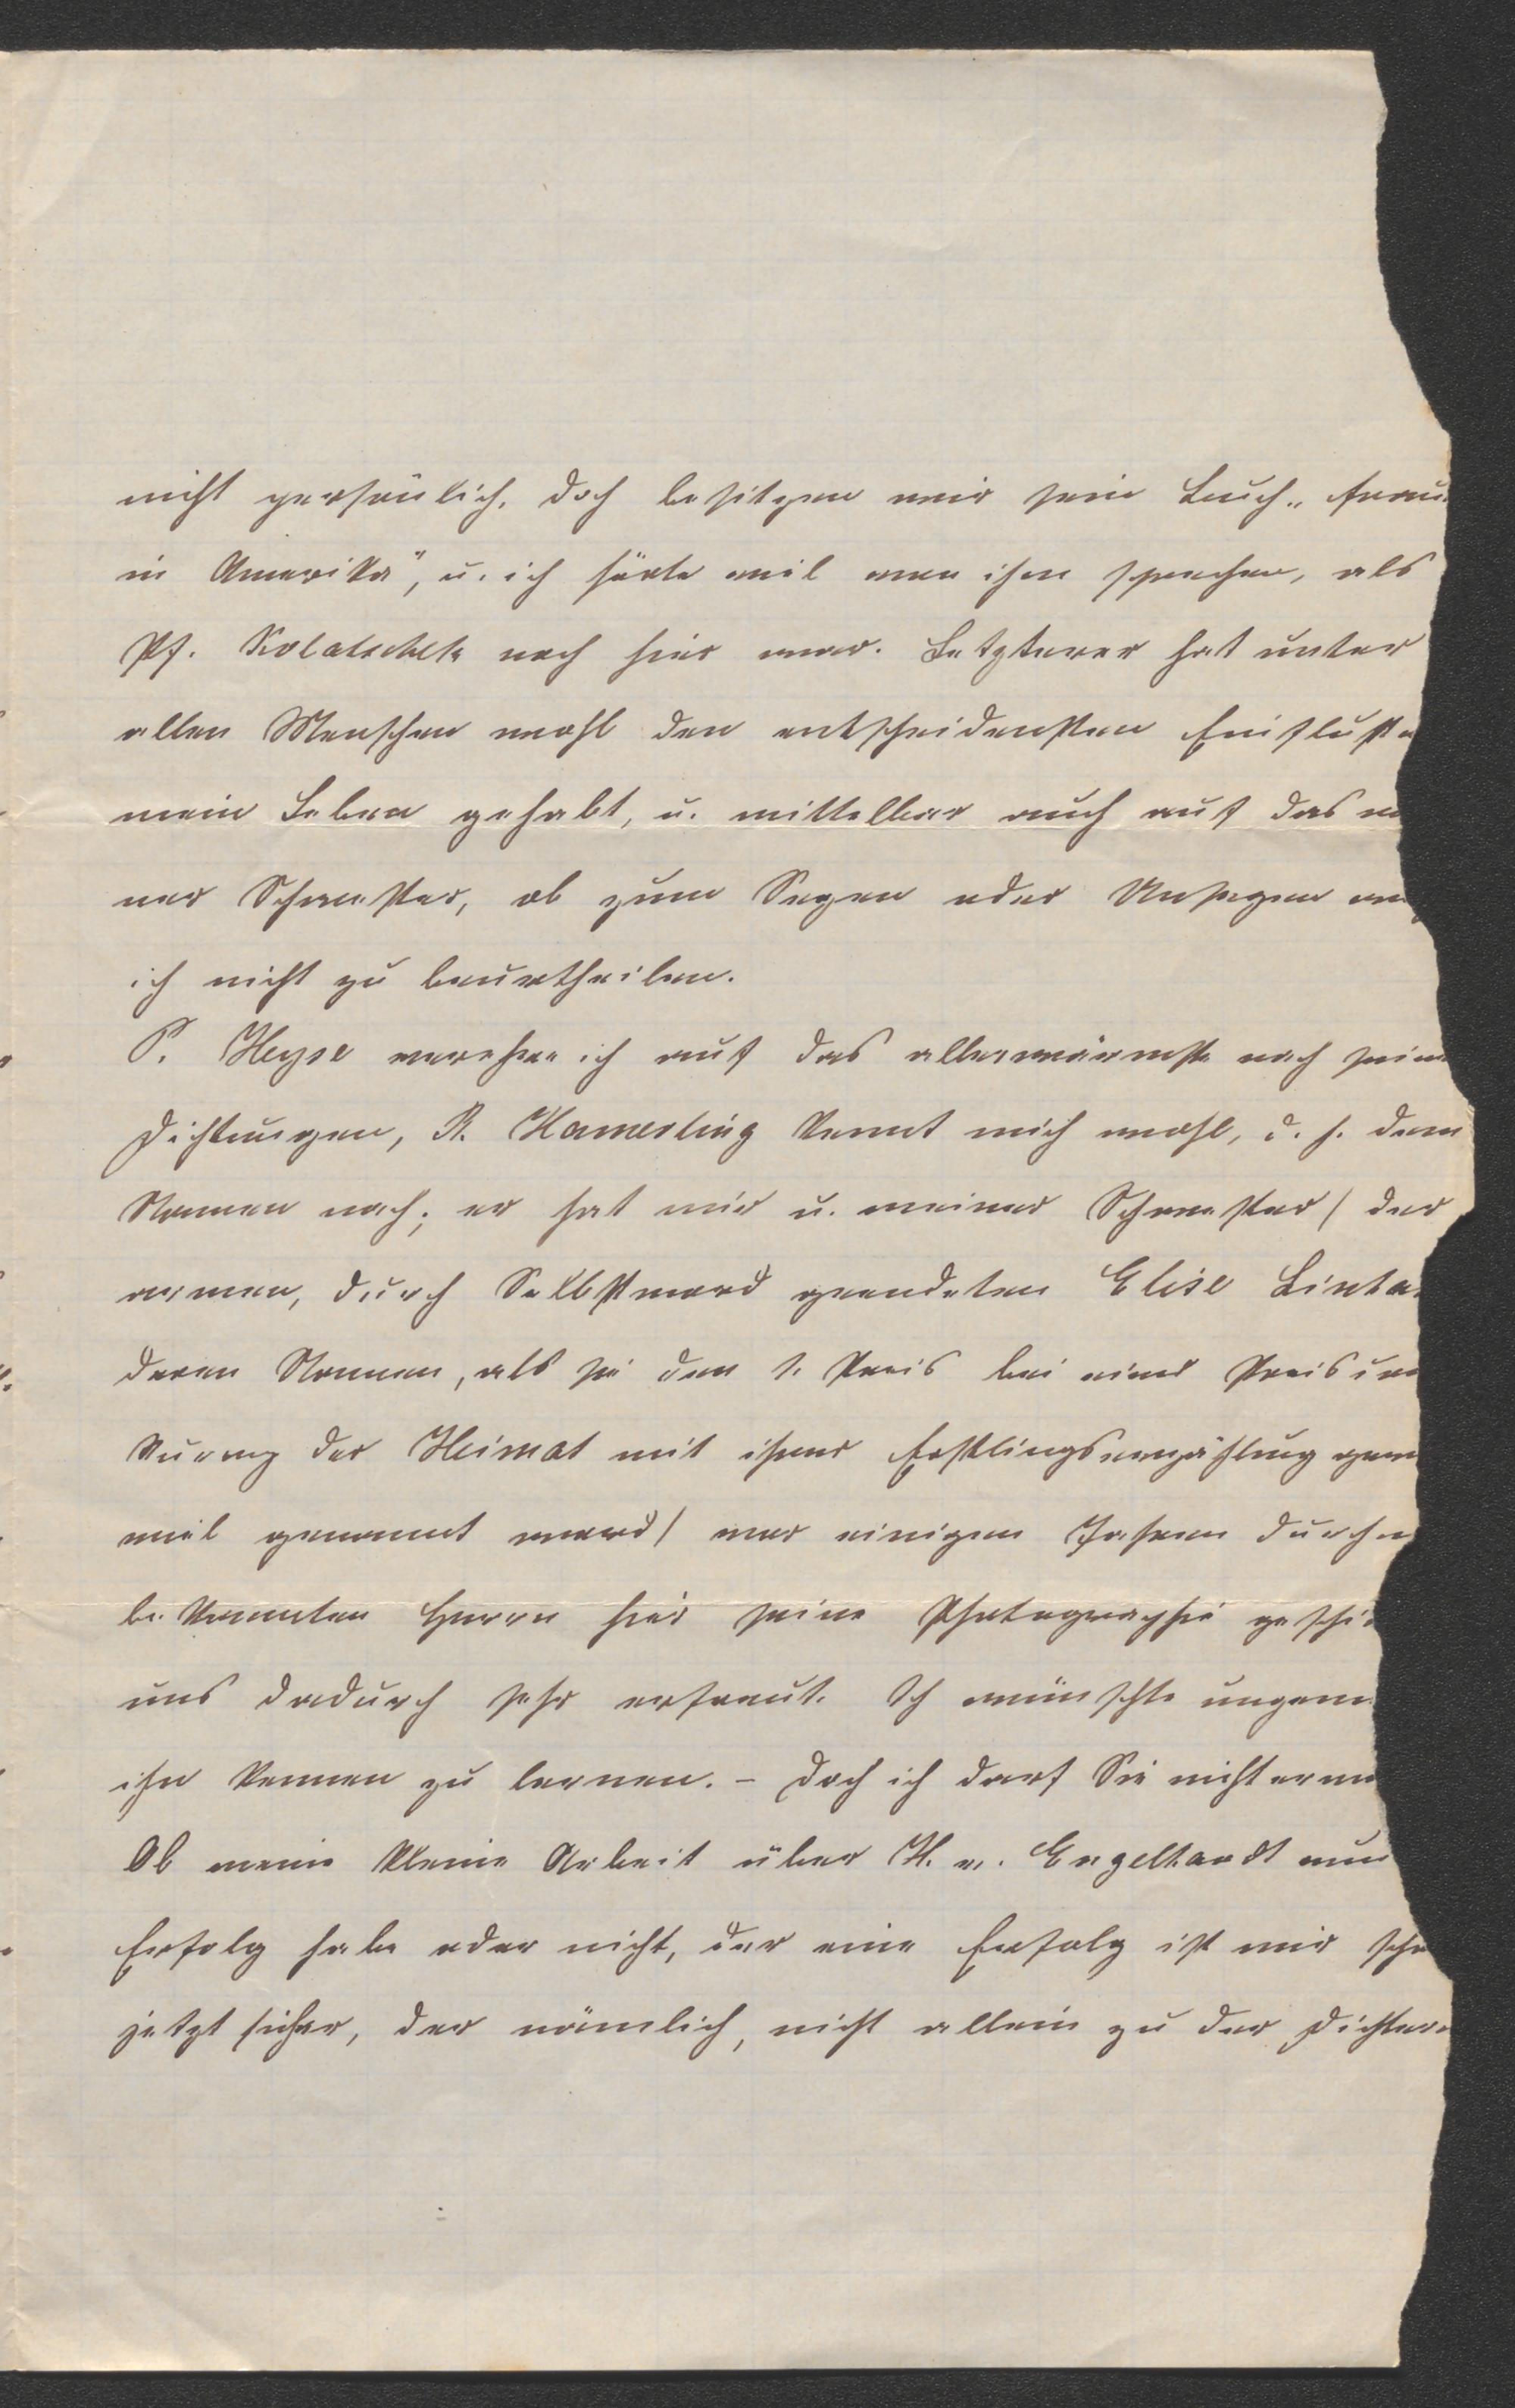 nicht persönlich, doch besitzen wir sein Buch „Frau
in Amerika", u. ich hörte viel von ihm sprechen, als
Pf. Kolatschek noch hier war. Letzterer hat unter
allen Menschen wohl den entscheidensten Einfluß a
mein Leben gehabt, u. mittelbar auch auf das m
ner Schwester, ob zum Segen oder Unsegen
ich nicht zu beurtheilen.
P. Heyse verehre ich auf das allerwärmste nach sein
Dichtungen, R. Hamerling kennt mich wohl, d. h. dem
Namen nach; er hat mir u. meiner Schwester / der
armen, durch Selbstmord geendeten Elise Linha
deren Namen, als sie den 1. Preis bei einer Preis
kurrenz der Heimat mit ihrer Erstlingserzählung gew
viel genannt ward / vor einigen Jahren durch
bekannten Herrn hier seine Photographie geschi
uns dadurch sehr erfreut. Ich wünschte ungem
ihn kennen zu lernen. – Doch ich darf Sie nicht erm
Ob meine kleine Arbeit über H. v. Engelhardt nun
Erfolg habe oder nicht, der eine Erfolg ist mir scho
jetzt sicher, der nämlich, nicht allein zu der Dichter